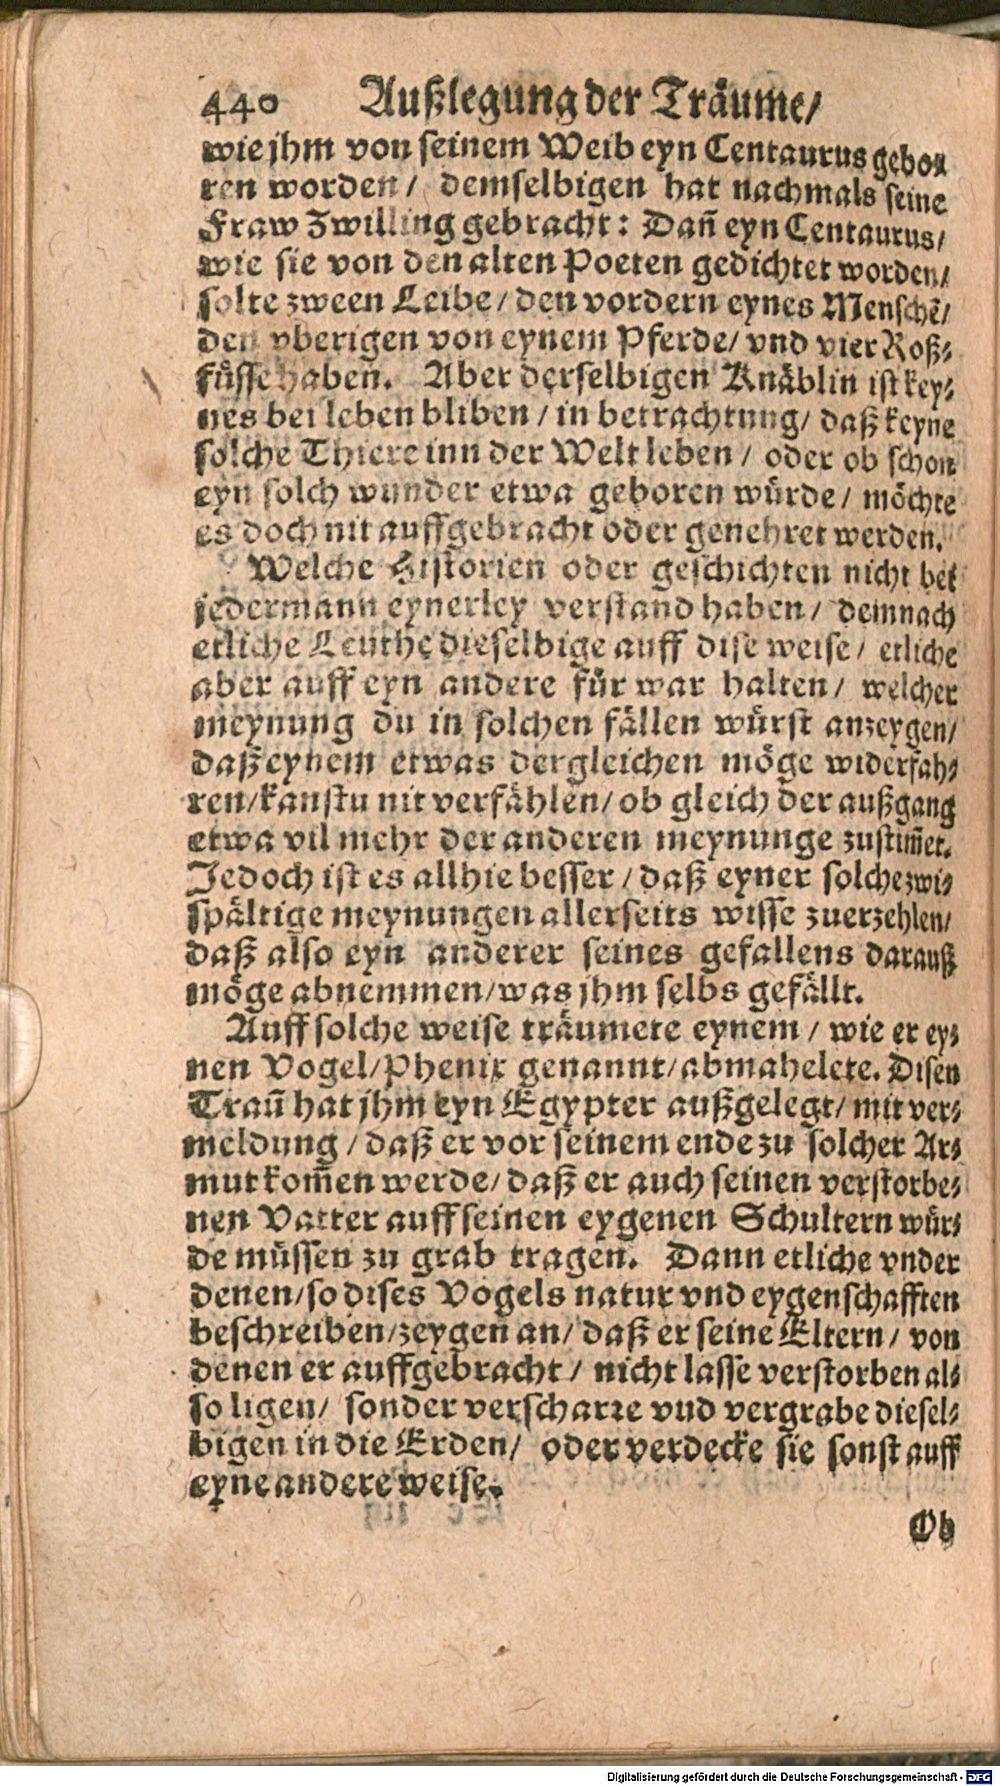 440 Außlegung der Träume/
wie jhm von seinem Weib eyn Centaurus gebo⸗
ren worden/ demselbigen hat nachmals seine
Fraw Zwilling gebracht: Dañ eyn Centaurus/
wie sie von den alten Poeten gedichtet worden/
solte zween Leibe/ den vordern eynes Menschē/
den vberigen von eynem Pferde/ vnd vier Roß⸗
füsse haben. Aber derselbigen Knäblin ist key⸗
nes bei leben bliben/ in betrachtung/ daß keyne
solche Thiere inn der Welt leben/ oder ob schon
eyn solch wunder etwa geboren würde/ möchte
es doch nit auffgebracht oder genehret werden.
Welche Historien oder geschichten nicht bei
jedermann eynerley verstand haben/ demnach
etliche Leuthe dieselbige auff dise weise/ etliche
aber auff eyn andere für war halten/ welcher
meynung du in solchen fällen würst anzeygen/
daß eynem etwas dergleichen möge widerfah⸗
ren/ kanstu nit verfählen/ ob gleich der außgang
etwa vil mehr der anderen meynunge zustim̄et.
Jedoch ist es allhie besser/ daß eyner solche zwi⸗
spältige meynungen allerseits wisse zuerzehlen/
daß also eyn anderer seines gefallens darauß
möge abnemmen/ was jhm selbs gefällt.
Auff solche weise träumete eynem/ wie er ey⸗
nen Vogel/ Phenix genannt/ abmahelete. Disen
Traum̄ hat jhm eyn Egypter außgelegt/ mit ver⸗
meldung/ daß er vor seinem ende zu solcher Ar⸗
mut kom̄en werde/ daß er auch seinen verstorbe⸗
nen Vatter auff seinen eygenen Schultern wür⸗
de müssen zu grab tragen. Dann etliche vnder
denen/ so dises Vogels natur vnd eygenschafften
beschreiben/ zeygen an/ daß er seine Eltern/ von
denen er auffgebracht/ nicht lasse verstorben al⸗
so ligen/ sonder verscharre vnd vergrabe diesel⸗
bigen in die Erden/ oder verdecke sie sonst auff
eyne andere weise.
Ob
Digitalisierung gefördert durch die Deutsche Forschungsgemeinschaft - DFG